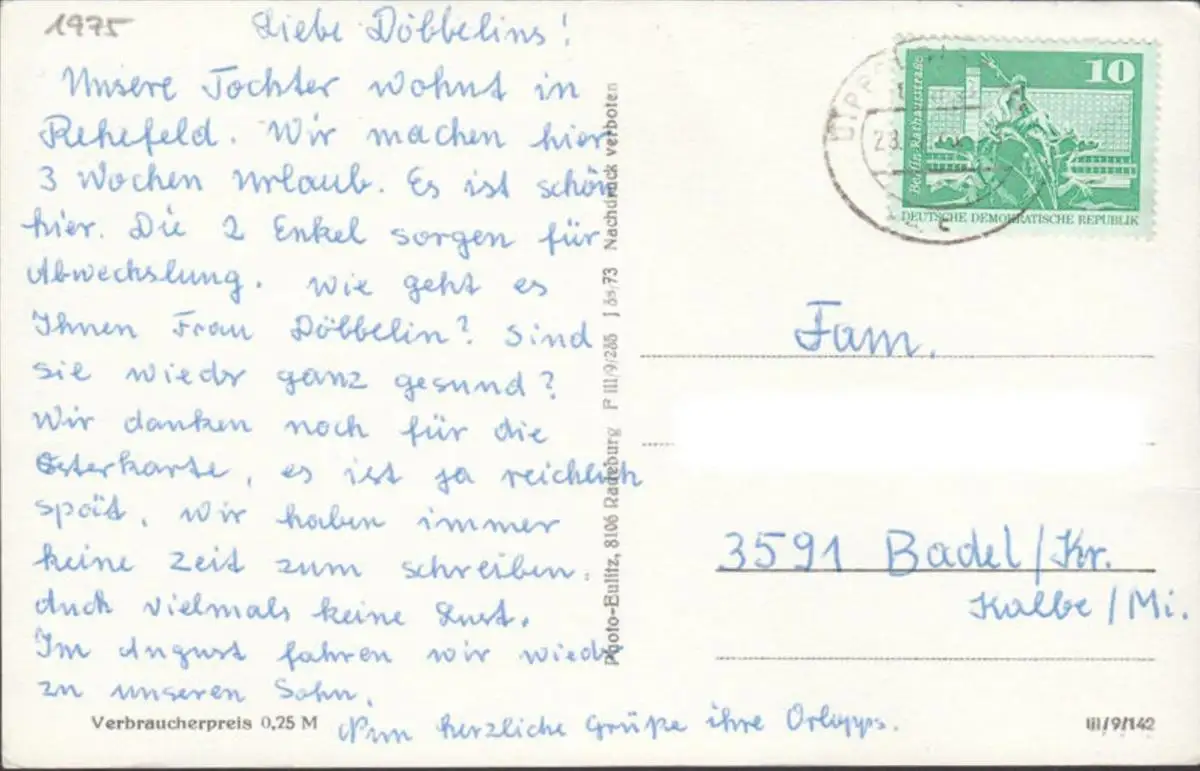 1975
Liebe Döbbelins!
Unsere Tochter wohnt in
Rehefeld. Wir machen hier
3 Wochen Urlaub. Es ist schön
hier. Die 2 Enkel sorgen für
Abwechslung. Wie geht es
Ihnen Frau Döbbelin? Sind
sie wieder ganz gesund?
Wir danken noch für die
Osterkarte, es ist ja reichlich
spät. Wir haben immer
keine Zeit zum schreiben.
Auch vielmals keine Lust.
Im August fahren wir wieder
zu unseren Sohn.
Nun herzliche Grüße ihre
Verbraucherpreis 0,25 M
Photo-Eulitz, 8106 Radeburg P III/9/286 J 65/73 Nachdruck verboten
10
Berlin, Rathausstraße
DEUTSCHE DEMOKRATISCHE REPUBLIK
Fam.
3591 Badel/Kr.
Kalbe/Mi.
III/9/142